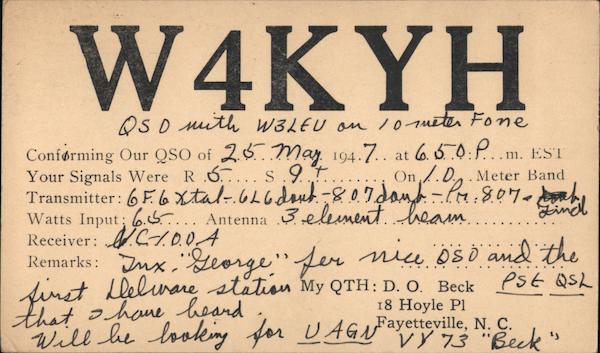 W4KYH
QSO with W3LEU on 10 meter Fone
Conforming Our QSO of 25 May 1947 at 6:50 P.m. EST
Your Signals Were R 5 S 9+ On 10 Meter Band
Transmitter: 6F6 Xtal-6L6 doub-807 doub-Pr. 807-
Watts Input: 65 Antenna 3 element beam
Receiver:
Remarks: Tnx. "George" fer nice QSO and the
first Delware station My QTH: D. O. Beck PSE QSL
that I have heard. 18 Hoyle Pl
Fayetteville, N. C.
Will be looking for U AGN VY 73 "Beck"